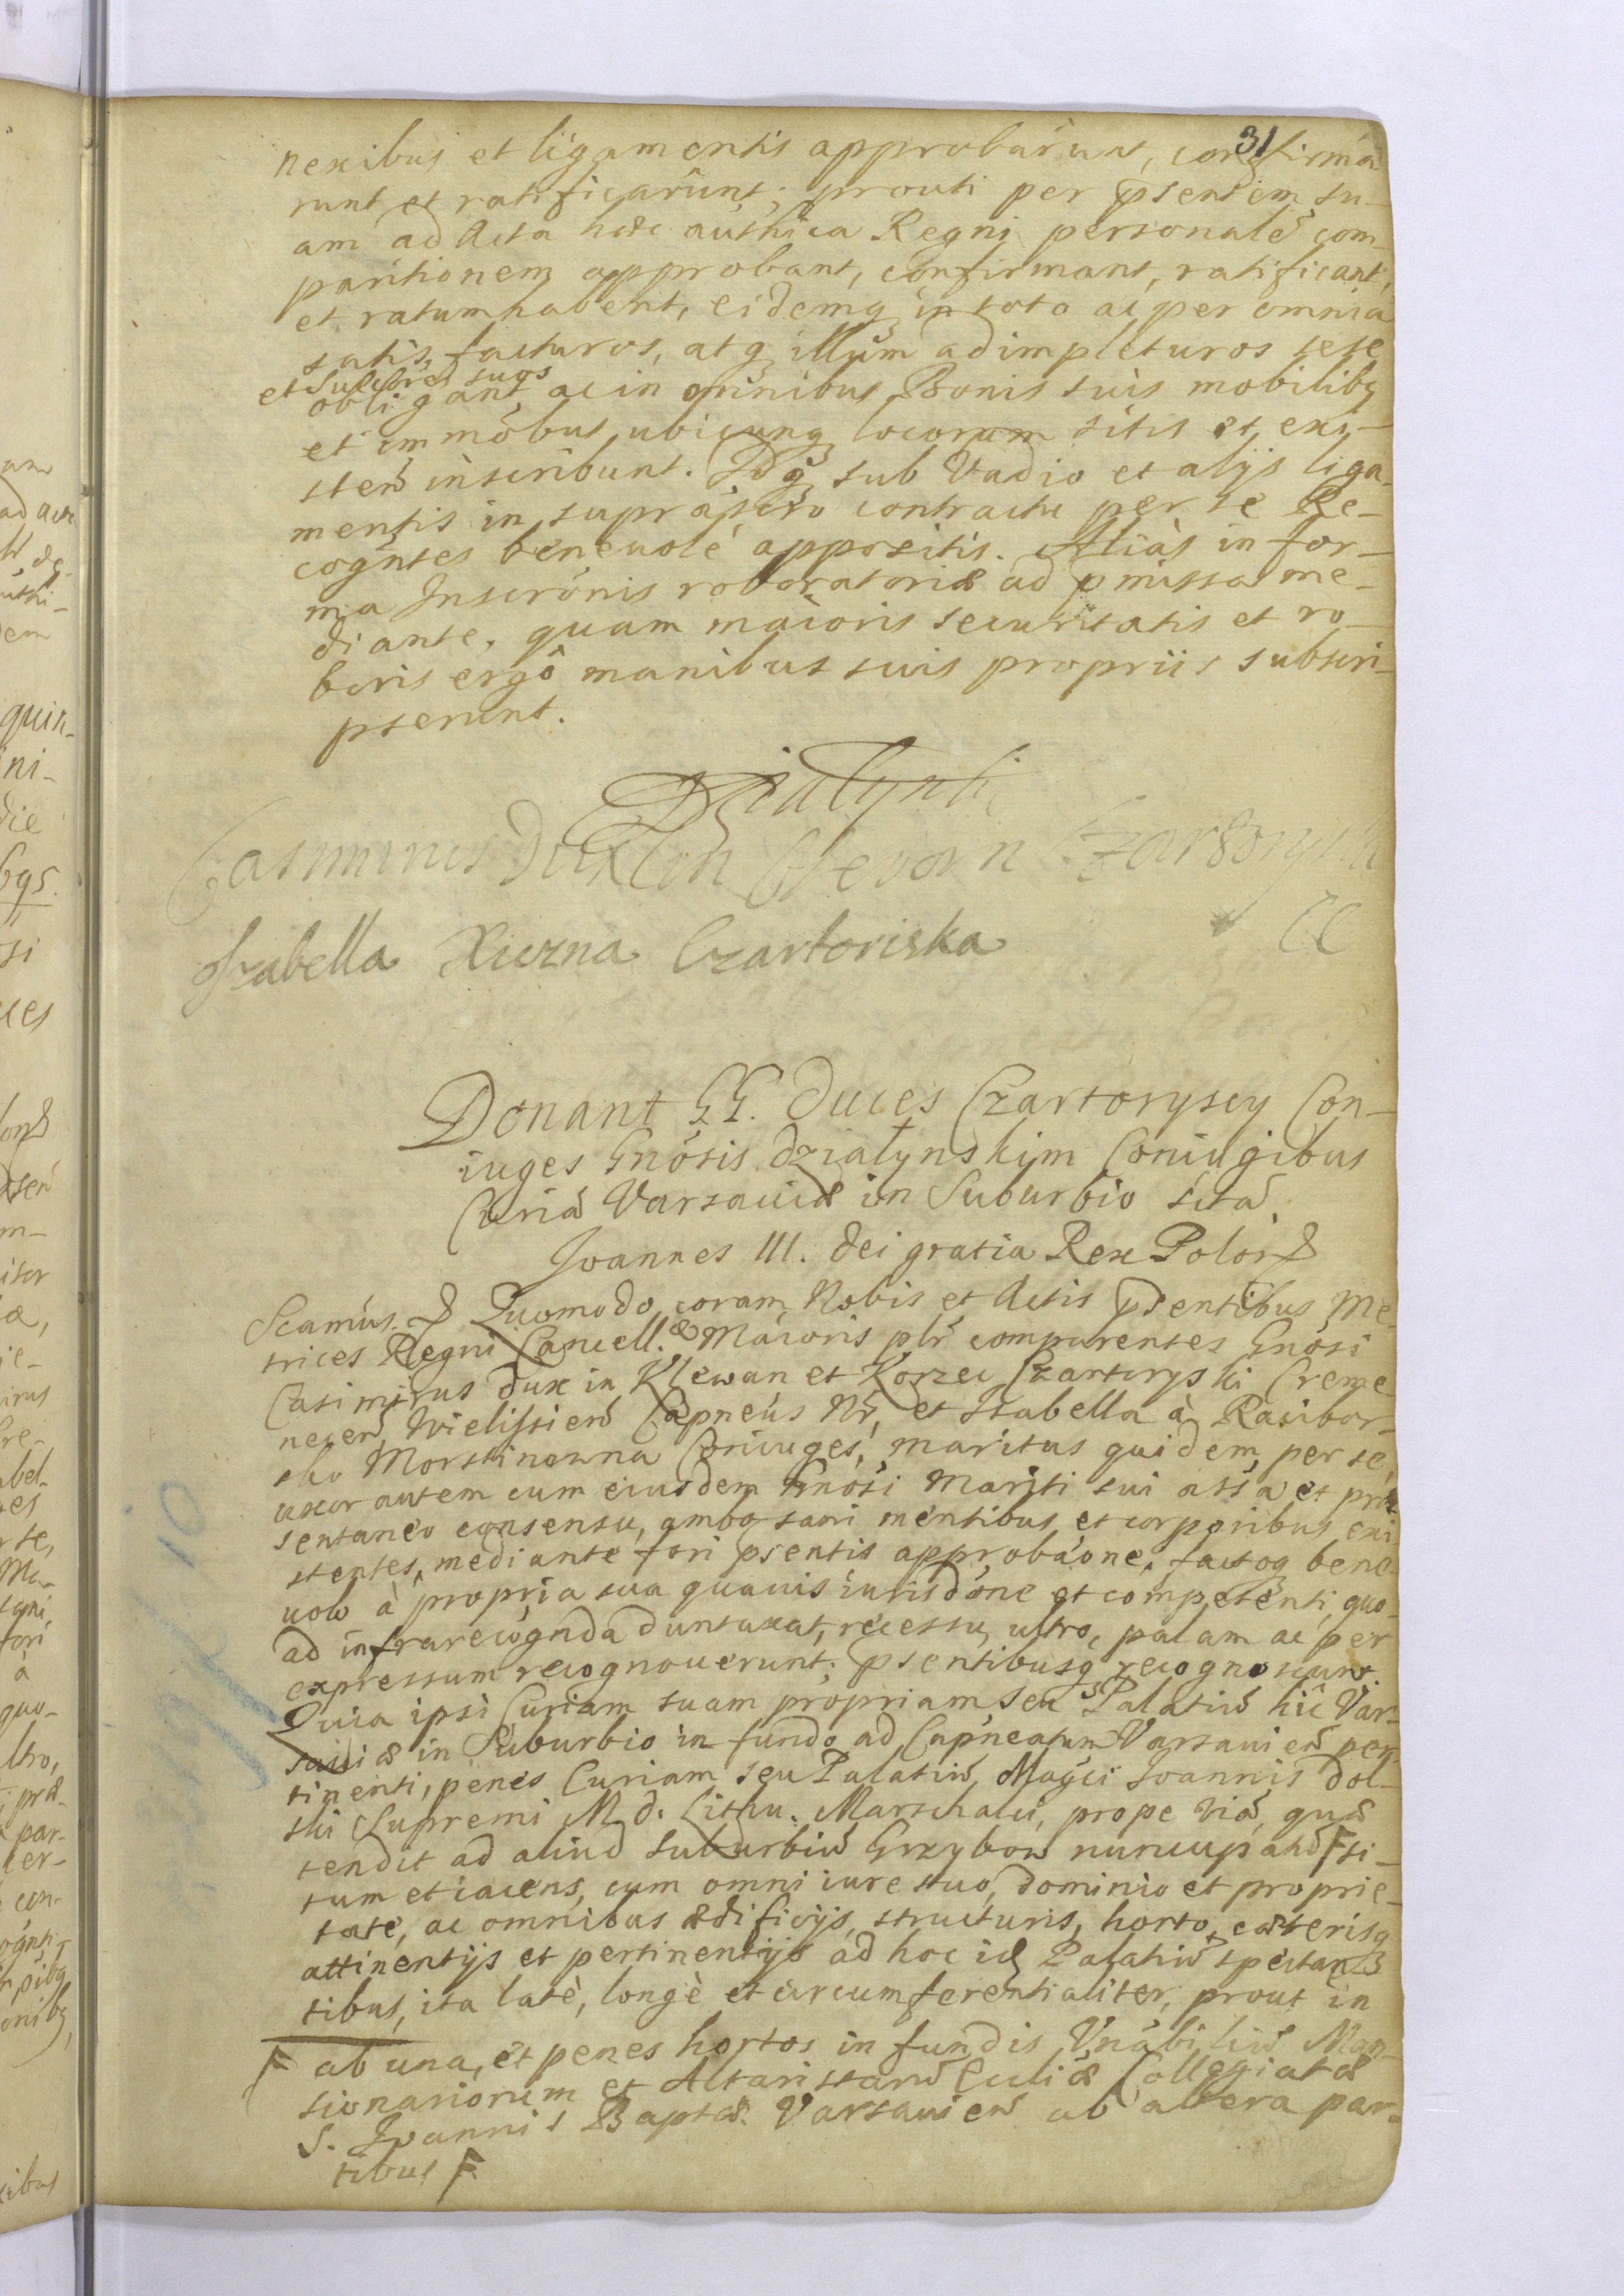 31
nexibus et ligamentis approbarunt, confirma
runt et ratificarunt; prouti per psentem su-
am ad Acta haec authica Regni personalē com-
paritionem approbant, confirmant, ratificant,
et ratumhabent, eidemq in toto ac per omnia
satis facturos, atq illum adimpleturos sese
et Succōres suos
obligant, ac in omnibus Bonis suis mobilibq
et immōbus, ubicunq locorum sitis et exi-
steñ inscribunt. Idq sub Vadio et alijs liga-
mentis in suprascto contractu per se Re-
cogntes beneuolé appositis. Aliàs in for-
ma Inscrōnis roboratoriæ ad pmissa me-
diante, quam maioris securitatis et ro-
boris ergô manibus suis propriis subscri-
pserunt.
Działynski
Casimirus Dux in Klevan Czartoryski
CC
Izabella Xiezna Czartoriska
Donant GG. Duces Czartoryscy Con-
iuges Gnōsis Działynskim Coniugibus
Curiā Varsauiæ in Suburbio sitā.
Joannes III. Dei gratia Rex Polor
Scamus. Quomodo coram Nobis et Actis psentibus Me-
trices Regni Cancell.æ Maioris plr comparentes Gnōsi
Casimirus Dux in Klewan et Korzec Czartoryski Creme-
neceñ, Wielisieñ Capneus Nr, et Isabella à Racibor-
sko Morstinowna Coniuges, maritus quidem per se,
uxor autem cum eiusdem Gnōsi Mariti sui assa et præ
sentaneo consensu, ambo sani mentibus et corporibus exi
stentes, mediante fori psentis approbāone, factoq bene-
uolo à propria sua quauis iurisdōne et competenti, quo-
ad infrarecognda duntaxat, recessu, ultro, palam ac per
expressum recognouerunt; psentibusq recognoscunt.
Quia ipsi Curiam suam propriam, seu Palatiū hic Var-
sauiæ in Suburbio in fundo ad Capneatum Varsauieñ per-
tinenti, penes Curiam seu Palatiū Magci Joannis Dol-
ski Supremi M. D. Lithu. Marschalci, prope viā, quæ
tendit ad aliud suburbiū Grzybow nuncupand F si-
tum et iacens, cum omni iure suo, dominio et proprie-
tate, ac omnibus ædificijs, structuris, horto, cæterisq
attinentijs et pertinentijs ad hoc id Palatiū spectan-
tibus, ita latè, longè et circumferentialiter, prout in
F ab una, et penes hortos in fundis Vnābiliū Man-
sionariorum et Altaristarū Eccliæ Collegiatæ
S. Joannis Baptæ. Varsauieñ ab altera par-
tibus F